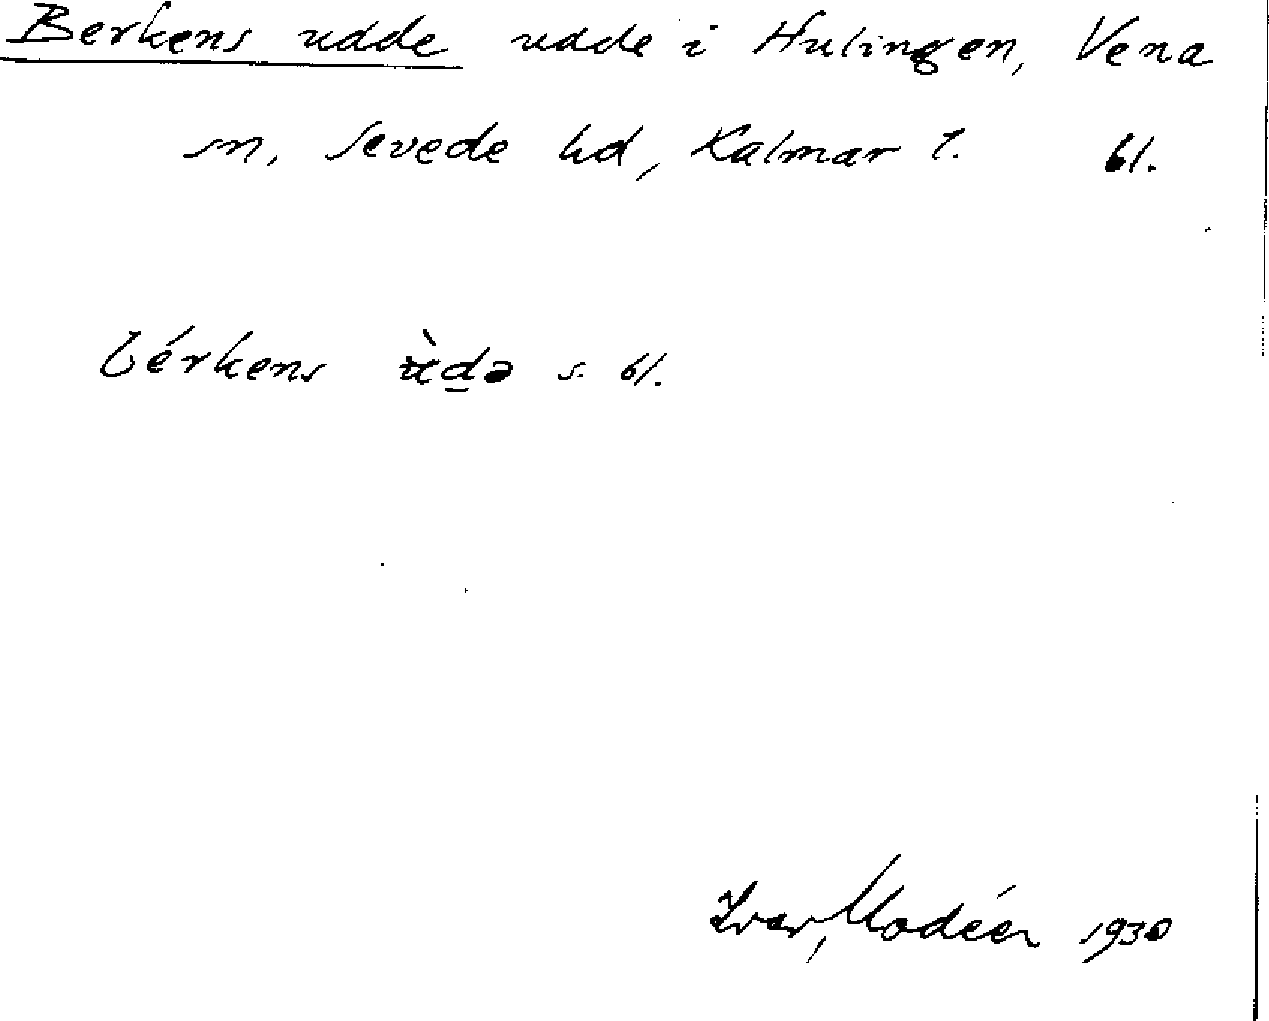 Berkens udde udde i Hulingen, Vena
sn, Sevede hd, Kalmar l. 61.
bérkens ùdə s. 61.
Ivar Modéer 1930